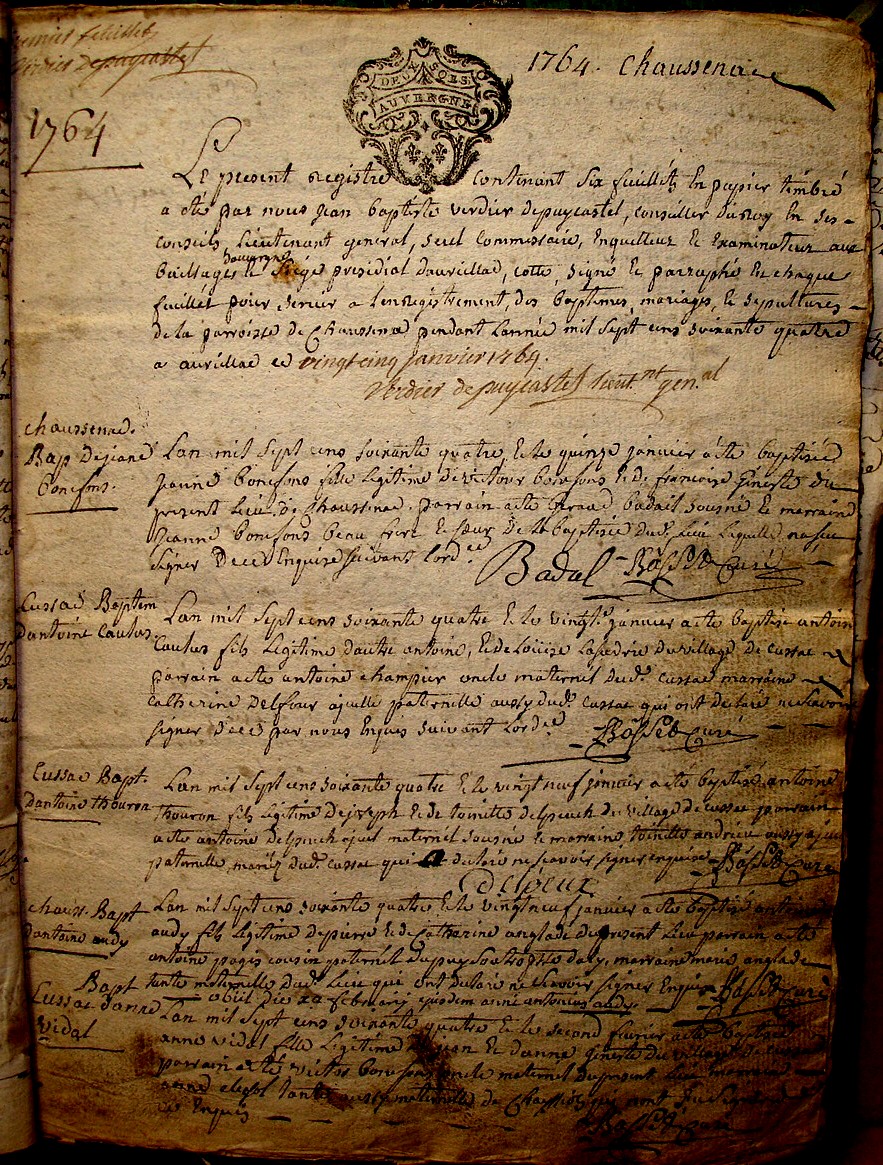 premier feuillet
Verdier depuycastel
DEUX SOLS
AUVERGNE
1764. Chaussenac
1764
Le present registre contenant six feuillets en papier timbré
a eté par nous jean baptiste verdier depuycastel, conseiller du roy en ses
conseils, Lieutenant general, seul Commissaire, enquetteur et examinateur aux
d'auvergne
bailliages et Siege presidial daurillac, cotté, signé et parraphé en chaque
feuillet pour servir a lenregistrement, des baptemes, mariages, et sepultures
de la parroisse de Chaussenac pendant lannée mil sept cens soixante quatre
a aurillac ce vingt cinq janvier 1764.
Verdier depuycastel lieut.nt gen.al
chaussenac.
Bap dejeane
bonefons.
Lan mil sept cens soixante quatre et le quinze janvier a eté baptisée
jeanne bonefons fille legitime de victour bonefons et de francoise gineste du
present Lieu de Chaussenac. parrain a eté Geraud badail sousné et marraine
jeanne bonefons beau frere et sœur de la baptisée dud. lieu laquelle na sceu
signer de ce enquise suivant lord.ce
Badal Basset Curé
Cussac Baptem
dantoine Caulus
Lan mil sept cens soixante quatre et le vingt.e janvier a eté baptisé antoine
Caulus fils legitime dautre antoine, et de Loüise Lapedrie du village de cussac
parrain a eté antoine champier oncle maternel dud. cussac marraine
Catherine Delfour ajeulle paternelle aussy dud. cussac qui ont declaré ne scavoir
signer de ce par nous Enquis suivant Lord.ce
Basset Curé
Cussac Bapt.
dantoine thouron
Lan mil sept cens soixante quatre et le vingt neuf janvier a eté baptisé antoine
thouron fils legitime de joseph et de toinette delpeuch du village de cussac parrain
a eté antoine delpeuch ajeul maternel sousné et marraine toinette andrieu aussy ajeulle
paternelle, mariés dud. cussac qui a declaré ne scavoir signer enquise Basset Curé
Delpeux
chauss. Bapt
dantoine audy
Lan mil sept cens soixante quatre et le vingt neuf janvier a eté baptisé antoine
audy fils legitime de pierre et de Catherine anglade du present lieu parrain a eté
antoine pages cousin paternel du puy Soutro daly, marraine marie anglade
tante maternelle dud. Lieu qui ont declaré ne scavoir signer Enquis Basset Curé
obiit die 29 februarii ejusdem anni antonius audy.
Bapt
Cussac danne
Vidal
Lan mil sept cens soixante quatre et le second fevrier a eté baptisée
anne vidal fille legitime de jean et danne gineste du village de cussac
parrain a eté victor bonefons oncle maternel du present lieu marraine
anne tante aussy maternelle de qui nont sceu signer
de ce Enquis
Basset Curé